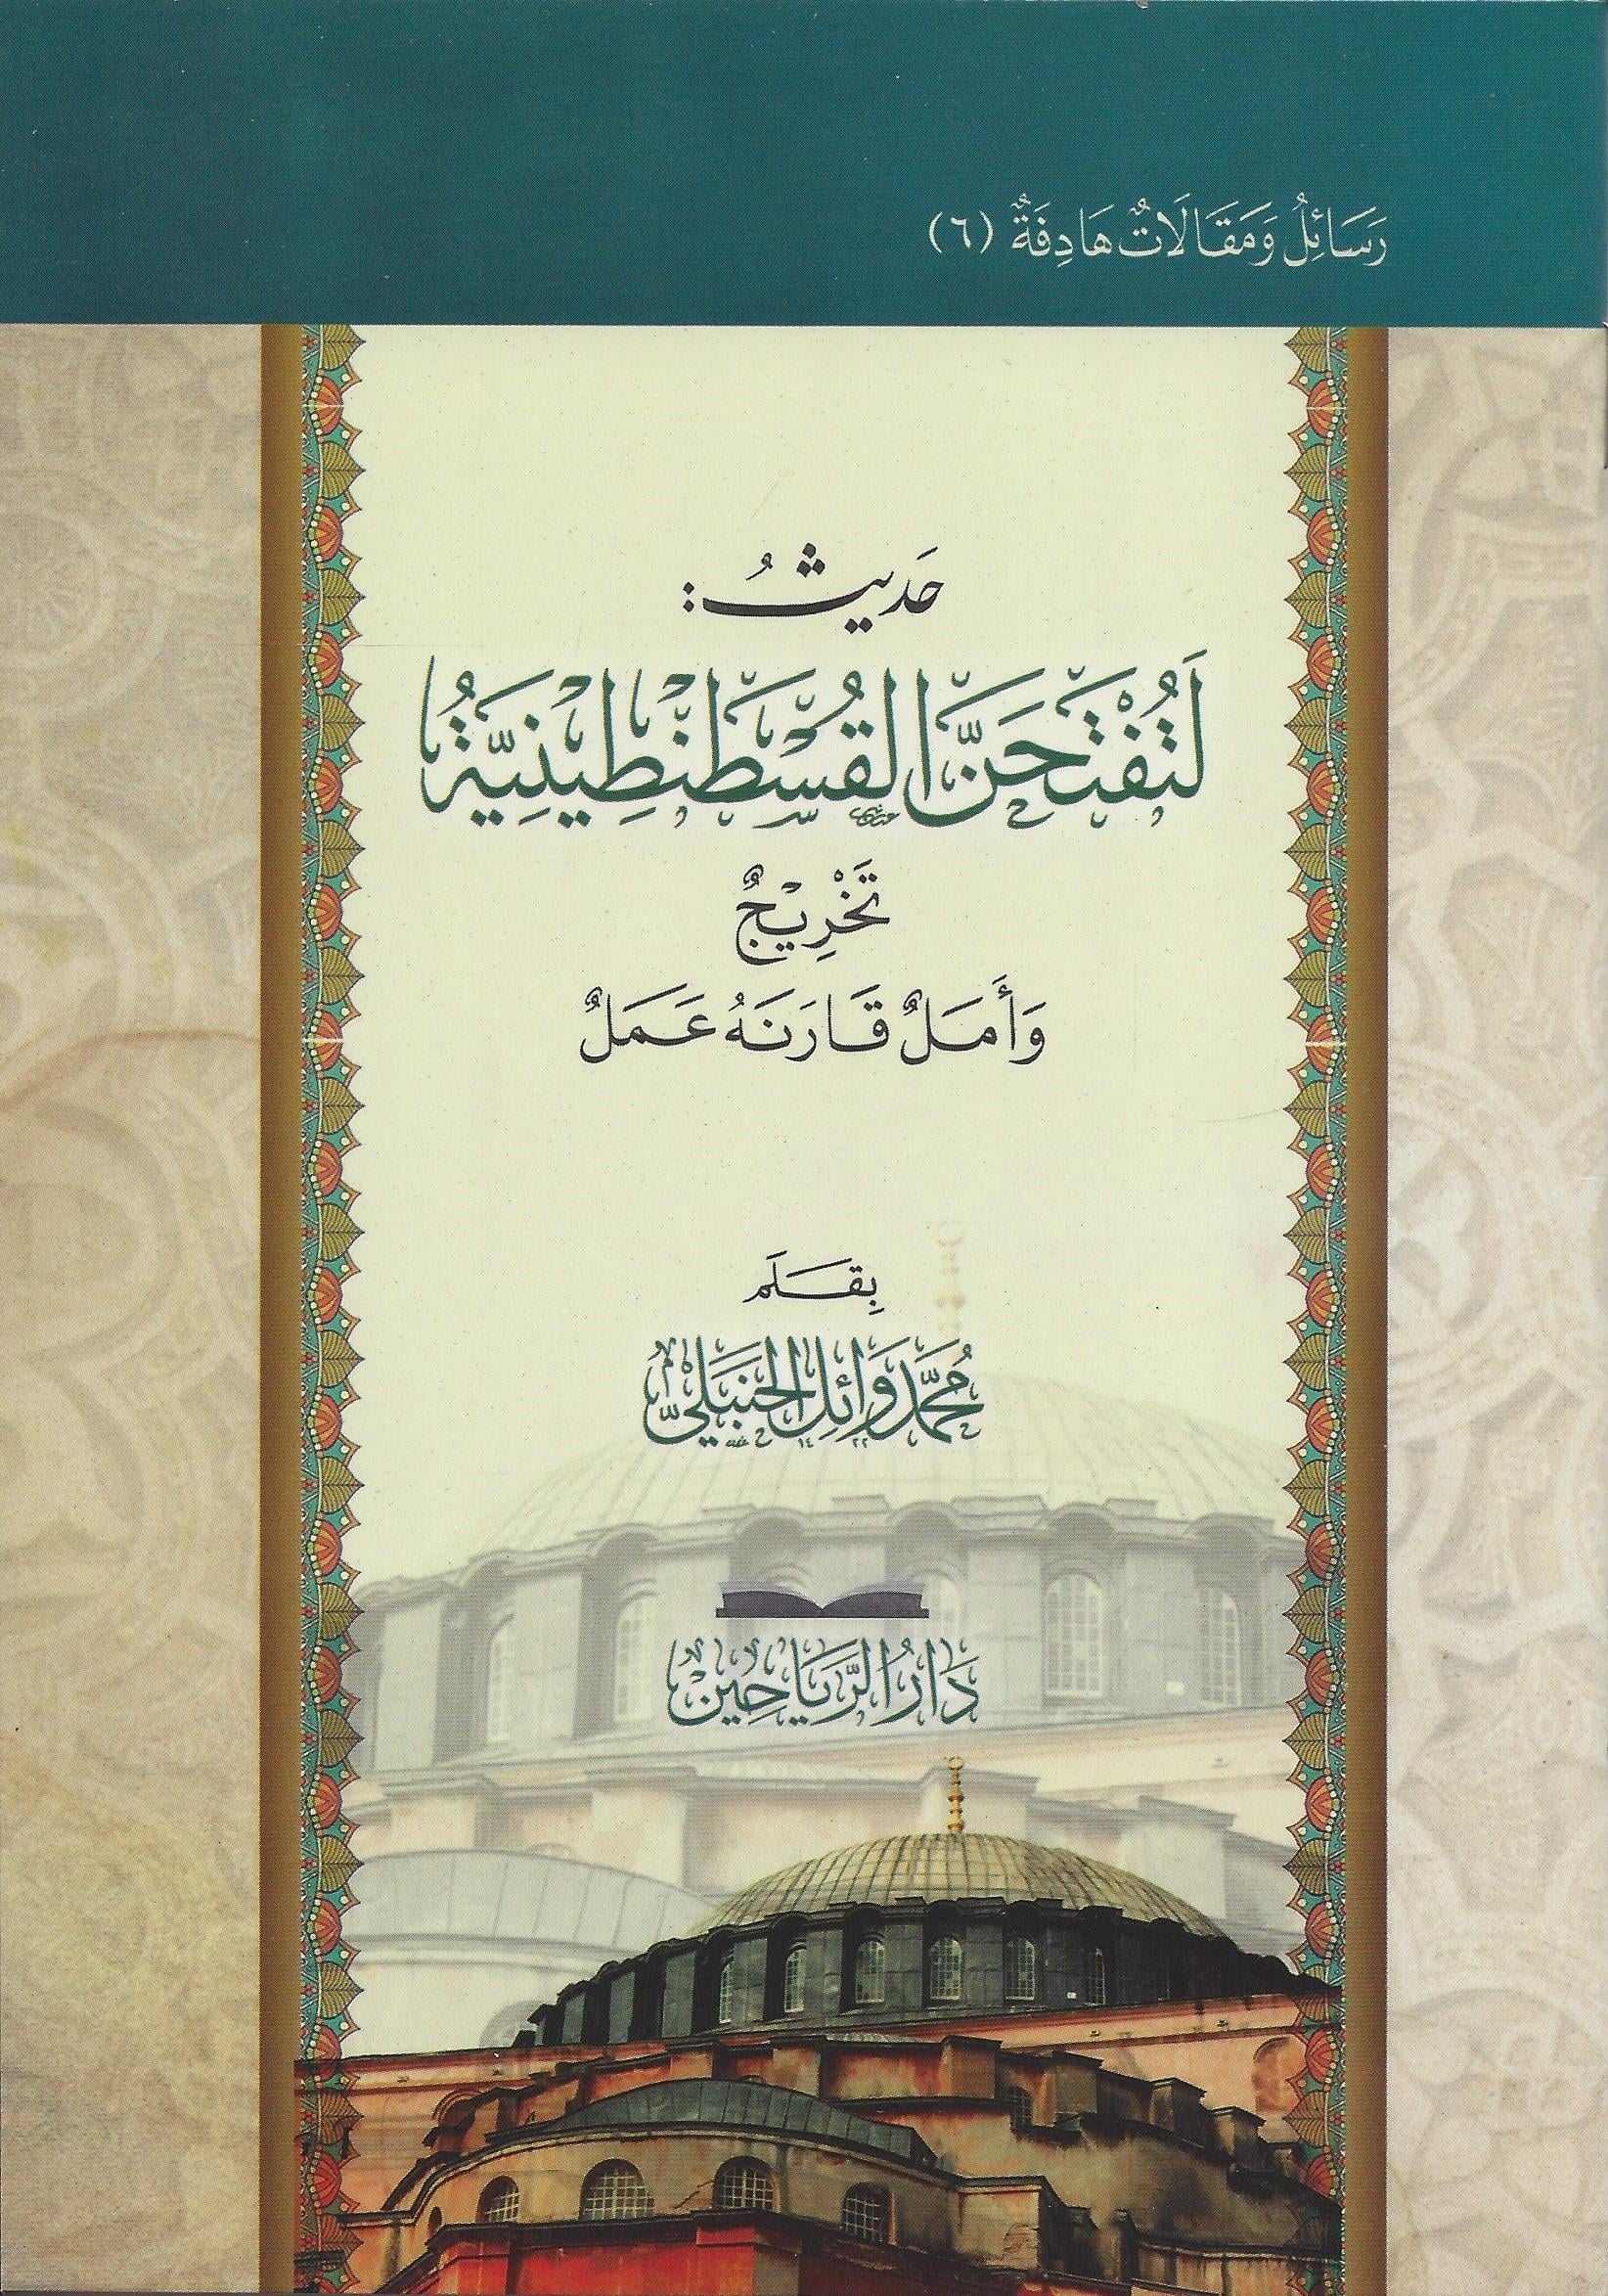 رَسَائِلُ وَمَقَالَاتٌ هَادِفَةٌ (٦)
حَدِيثُ:
لَتُفْتَحَنَّ القُسْطَنْطِينِيَّةُ
تَخْرِيْجٌ
وَأَمَلٌ قَارَنَهُ عَمَلٌ
بِقَلَم
مُحَمَّد وَائِل الحَنْبَلِيّ
دَارُ الرَّيَاحِيْن